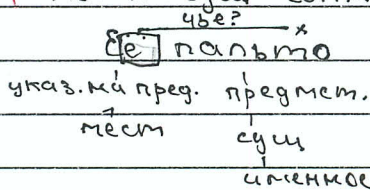 чье?
Её пальто
указ. на пред. предмет.
мест сущ
именное